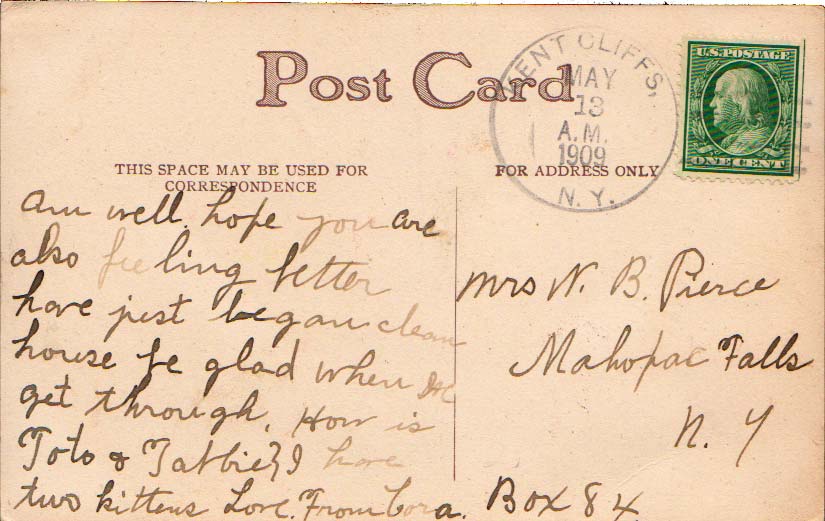 Post Card
KENT CLIFFS,
MAY
13
A.M.
1909
N.Y.
U.S. POSTAGE
ONE CENT
THIS SPACE MAY BE USED FOR
CORRESPONDENCE
FOR ADDRESS ONLY
am well. hope you are
also feeling better
have just began clean
house be glad when we
get through. How is
Toto & Tabbie? I have
two kittens Love. From Cora.
Mrs W. B. Pierce
Mahopac Falls
N. Y
Box 84